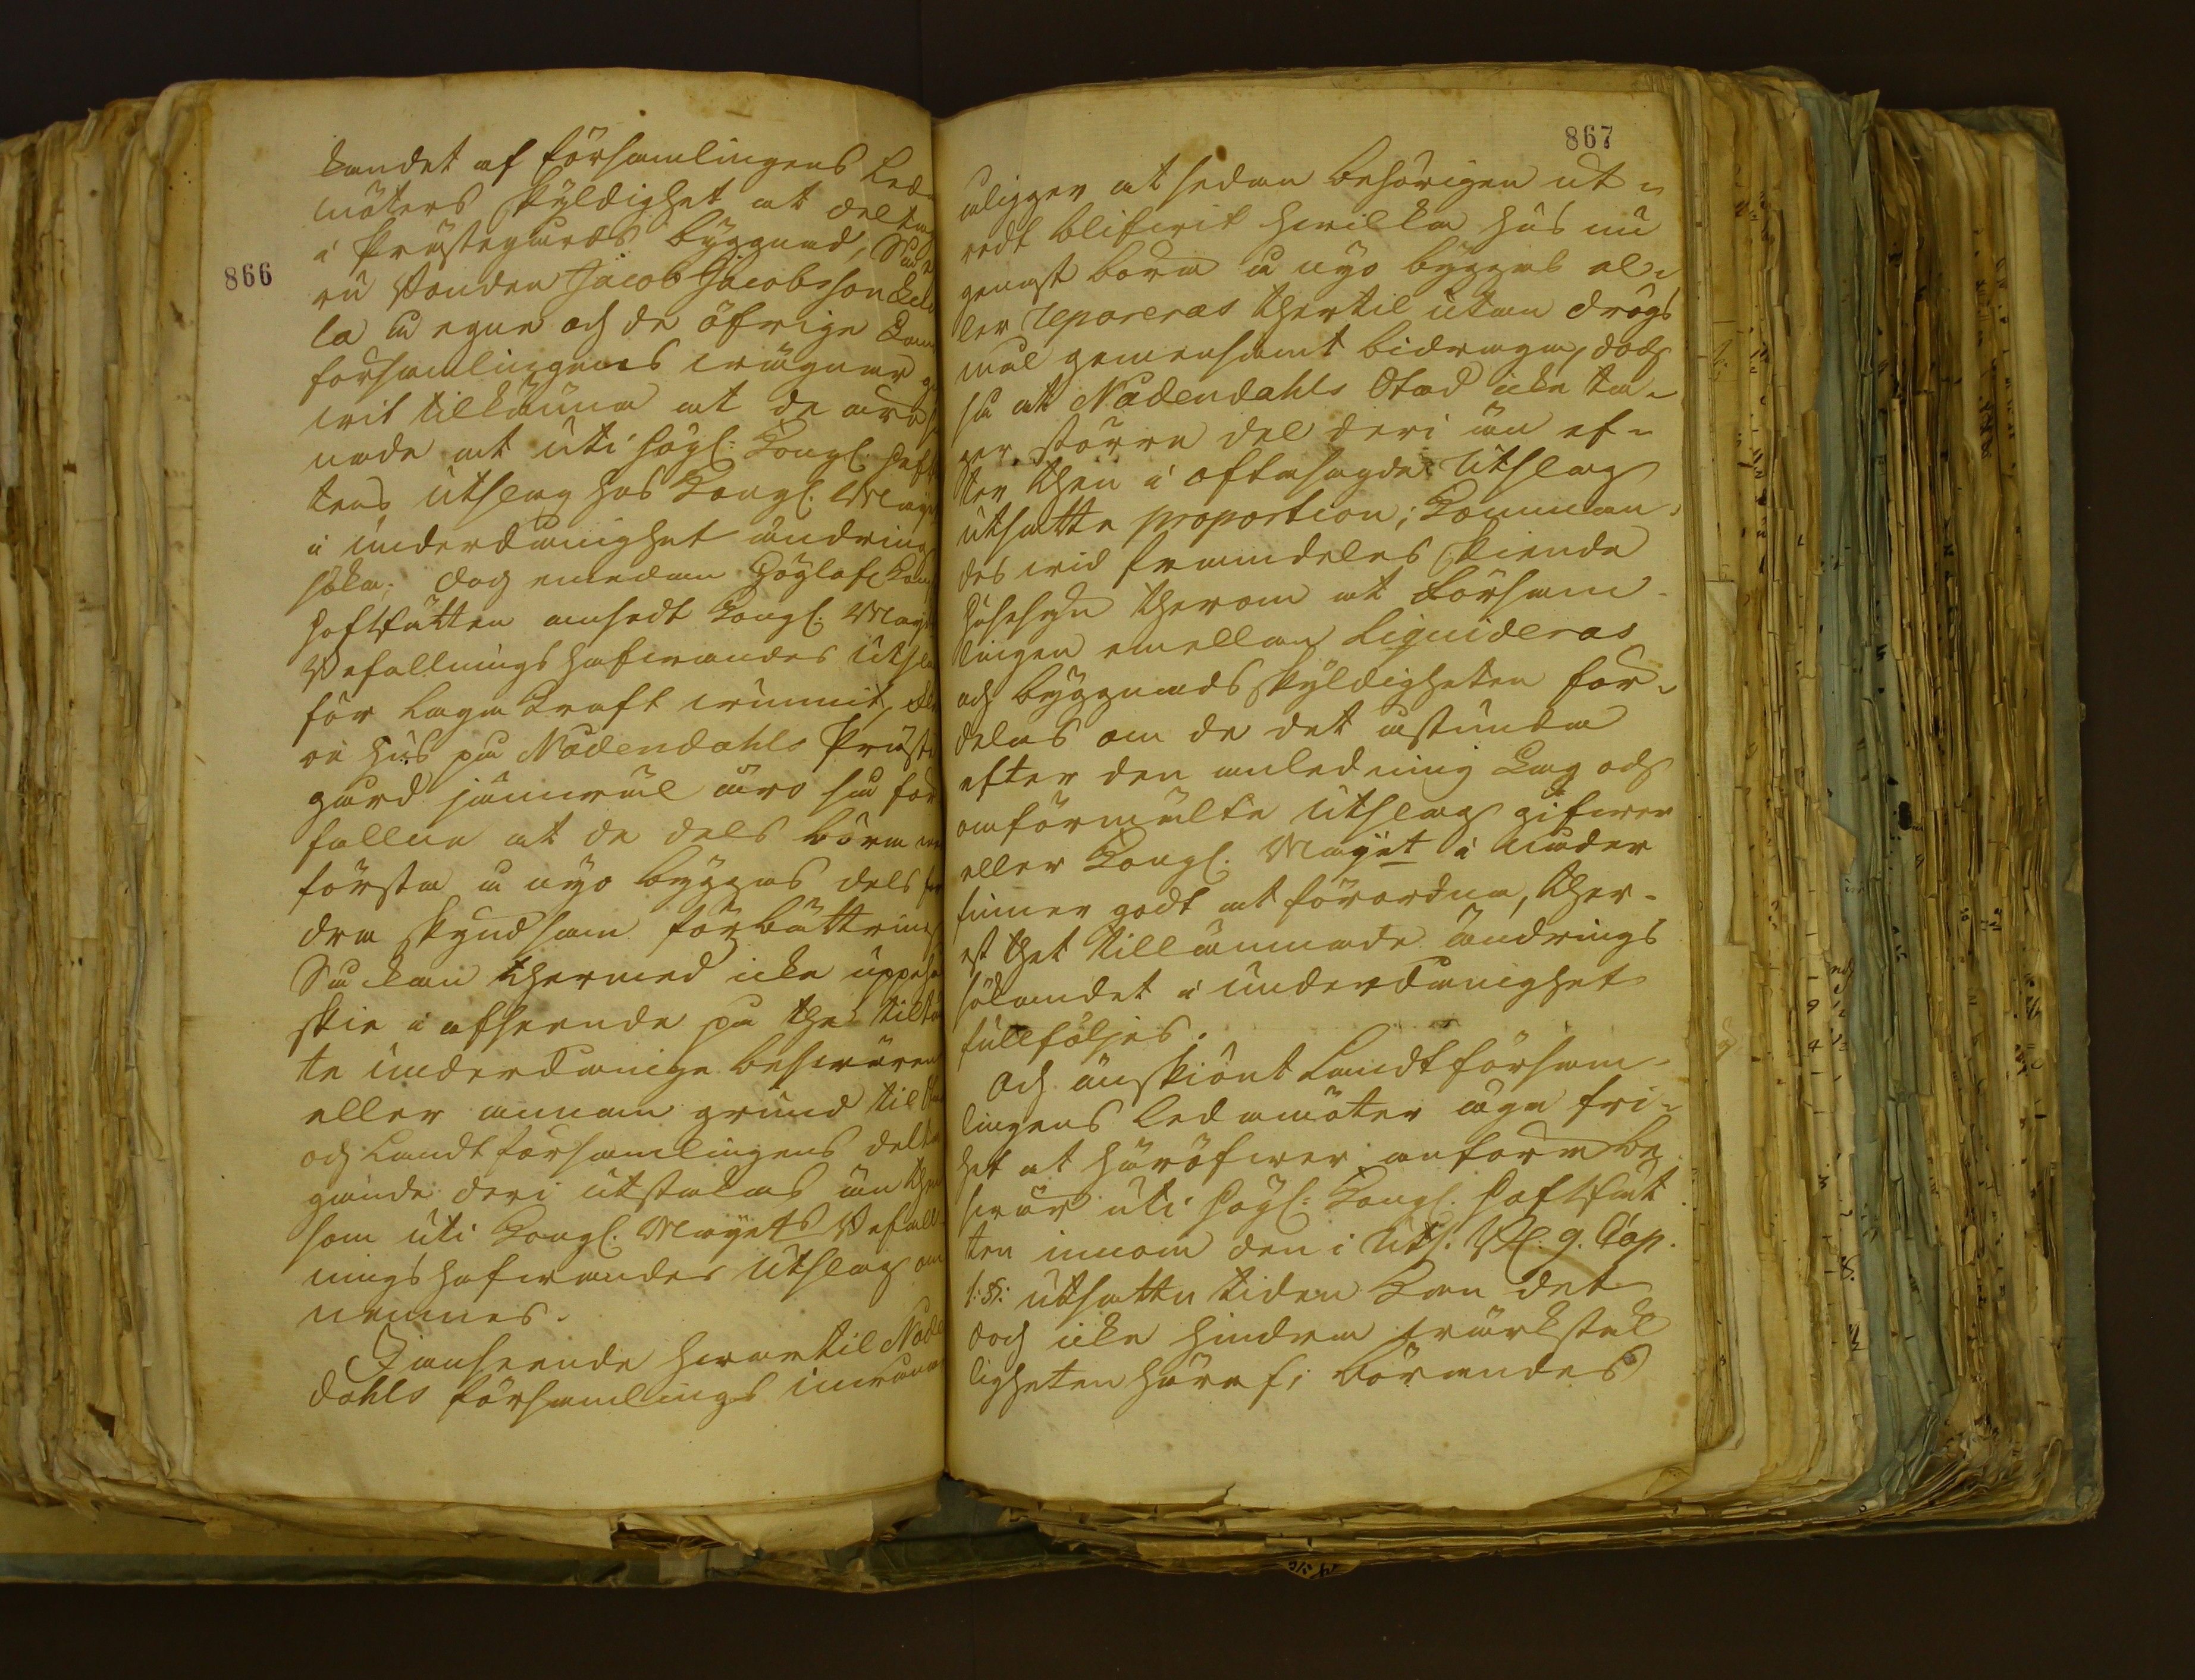 866
kandet af församlingens Leda
möters skÿldighet at delta
i Prästegårds bÿggnad, Så
nu Bonden Jacob Jacobsson
la å egne och de öfrige
församlingens wägnar
wit tilkänna at de äro
nade at uti Högl: Kongl. Hof
tens utslag hos Kongl. Maÿ
i underdånighet ändring
söka; dog emedan Höglofl Kong
Hofrätten ansedt Kongl: Maÿ
Befallningshafwandes utsla
för Laga kraft wunnit,
re hus på Nådendahls Präste
gård jämwäl äro så för
fallne at de dels böra
första å nÿo bÿggas dels
dra skÿndsam förbättring
Så kan thermed icke uppeh
ske i afseende på the
te underdånige beswären
eller annan grund til
och Landtförsamlingens delta
gande deri utstakas än then
som uti Kongl. Maÿets Befall
ningshafwandes utslag om
nemnes.
I anseende hwartil Nåde
dahls församlings

867
åligger at sedan behörigen ut-
redt blifwit hwilka hus nu
genast böra å nÿo bÿggas el-
ler repareras thertil utan drögs
mål gemensamt bidraga, doch
så att Nådendahls Stad icke ta-
ger större del deri än ef-
ter then i oftasagde utslag
utsatte proportion; Kommen-
des wid framdeles skiende
husesÿn therom at försam-
lingen emellan liquideras
och bÿggnadsskÿldigheten för-
delas om de det åstunda
efter den anledning Lag och
omförmälte utslag gifwer
eller Kongl. Maÿet i nåder
finner godt at förordna, ther-
est thet tillämnade ändrings
sökandet i underdånighet
fullföljes.
Och änskiönt Landtförsam-
lingens Ledamöter äga fri-
het at häröfwer anföra be
swär uti Högl: Kongl. Hofrät
ten innom den i Uts. Bl. 9. Cap.
1: §: utsatta tiden kan det
doch icke hindra wärkstäl
ligheten häraf; börandes